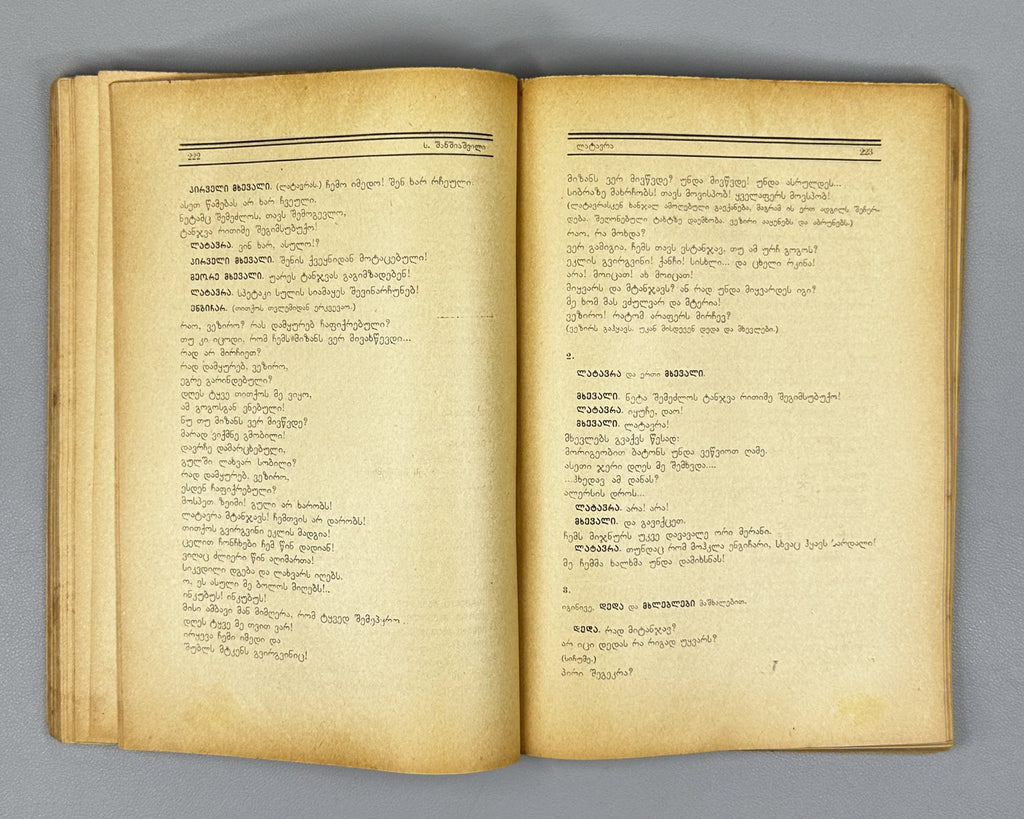 222
ს. შანშიაშვილი
პირველი მხევალი. (ლატავრას.) ჩემო იმედო! შენ ხარ რჩეული.
ასეთ წამებას არ ხარ ჩვეული.
ნეტამც შემეძლოს, თავს შემოგევლო,
ტანჯვა რითიმე შეგიმსუბუქო!
ლატავრა. ვინ ხარ, ასულო!?
პირველი მხევალი. შენის ქვეყნიდან მოტაცებული!
მეორე მხევალი. უარეს ტანჯვას გაგიმზადებენ!
ლატავრა. სპეტაკი სულის სიამაყეს შევინარჩუნებ!
ენგიჩარ. (თითქოს თვლემიდან ერკვევაო.)
რაო, ვეზირო? რას დამყურებ ჩაფიქრებული?
თუ კი იცოდი, რომ ჩემს მიზანს ვერ მივაწევდი...
რად არ მირჩიეთ?
რად დამყურებ, ვეზირო,
ეგრე გარინდებული?
დღეს ტყვე თითქოს მე ვიყო,
ამ გოგოსგან ვნებული!
ნუ თუ მიზანს ვერ მივწვდე?
მარად ვიქმნე გმობილი!
დავრჩე დამარცხებული,
გულში ლახვარ სობილი?
რად დამყურებ, ვეზირო,
ესდენ ჩაფიქრებული?
მოსპეთ ზეიმი! გული არ ხარობს!
ლატავრა მტანჯავს! ჩემთვის არ დარობს!
თითქოს გვირგვინი ეკლის მადგია!
ცელით ჩონჩხები ჩემ წინ დადიან!
ვიღაც ძლიერი წინ აღიმართა!
სიკვდილი დგება და ლახვარს იღებს,
ო, ეს ასული მე ბოლოს მიღებს!..
ინკუბუს! ინკუბუს!
მისი ამბავი მან მიმღერა, რომ ტყვედ შემეპყრო.
დღეს ტყვე მე თვით ვარ!
ირყევა ჩემი იმედი და
შუბლს მტკენს გვირგვინიც!
ლატავრა
223
მიზანს ვერ მივწვდე? უნდა მივწვდე! უნდა ასრულდეს...
სიბრაზე მახრჩობს! თავს მოვისპობ! ყველაფერს მოვსპობ!
(ლატავრასკენ ხანჯალ ამოღებული გაექანება, მაგრამ ის ერთ ადგილს შეჩერ-
დება. შეღონებული ტახტზე დაემხობა. ვეზირი ააყენებს და აბრუნებს.)
რაო, რა მოხდა?
ვერ გამიგია, ჩემს თავს ვსტანჯავ, თუ ამ ურჩ გოგოს?
ეკლის გვირგვინი! ქანჩი! სისხლი... და ცხელი რკინა!
არა! მოიცათ! ახ მოიცათ!
მიყვარს და მტანჯავს? ან რად უნდა მიყვარდეს იგი?
მე ხომ მას ვძულვარ და მტერია!
ვეზირო! რატომ არაფერს მირჩევ?
(ვეზირს გაჰყავს. უკან მისდევენ დედა და მხევლები.)
2.
ლატავრა და ერთი მხევალი.
მხევალი. ნეტა შემეძლოს ტანჯვა რითიმე შეგიმსუბუქო!
ლატავრა. იყუჩე, დაო!
მხევალი. ლატავრა!
მხევლებს გვაქვს წესად:
მორიგეობით ბატონს უნდა ვეწვიოთ ღამე.
ასეთი ჯერი დღეს მე შემხვდა....
...ჰხედავ ამ დანას?
ალერსის დროს...
ლატავრა. არა! არა!
მხევალი. და გავიქცეთ.
ჩემს მიჯნურს უკვე დავავალე ორი მერანი.
ლატავრა. თუნდაც რომ მოჰკლა ენგიჩარი, სხვაც ჰყავს სარდალი!
მე ჩემმა ხალხმა უნდა დამიხსნას!
3.
იგინივე, დედა და მხლებლები მაშხალებით.
დედა. რად მიტანჯავ?
არ იცი დედას რა რიგად უყვარს?
(სიჩუმე.)
პირი შეგეკრა?